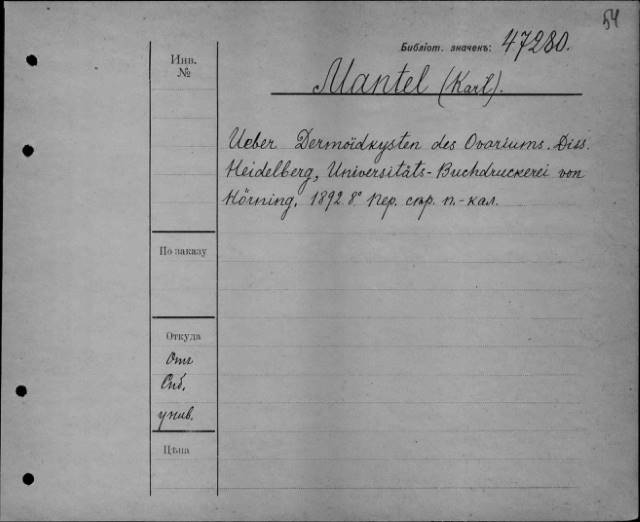 54
Библіот. значекъ: 47280.
Инв. №
Mantel (Karl).
Ueber Dermoïdkysten des Ovariums. Diss.
Heidelberg, Universitäts-Buchdruckerei von
Hörning, 1892. 8° Пер. стр. п.-кал.
По заказу
Откуда
Отг
Спб.
унив.
Цѣна